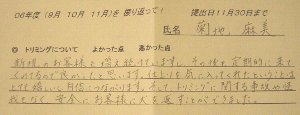 06年度(9月 10月 11月)を振り返って! 提出日11月30日まで
氏名 菊地 麻美
◎トリミングについて よかった点 悪かった点
新規のお客様も増え続けています。その後も定期的に来て
くれるので良かったと思います。仕上りを気に入ってくれたということは
とても嬉しいし自信につながります。そして、トリミングに関する事故や怪
我もなく、安全にお客様に犬を返すことができました。